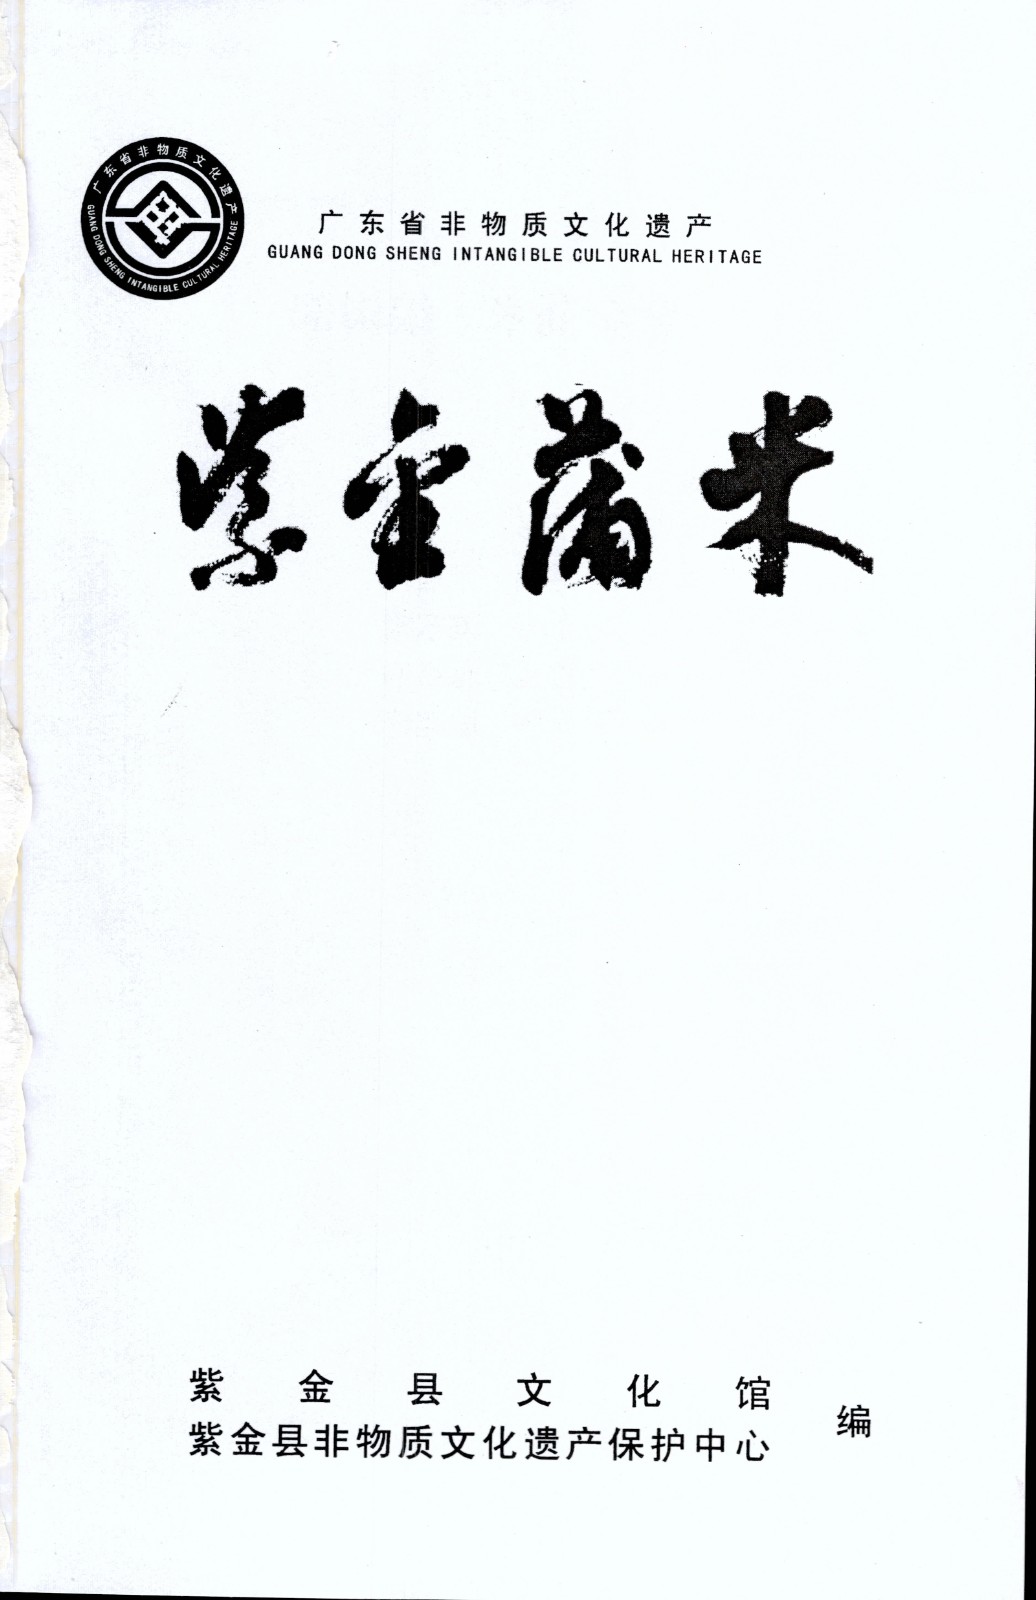 广东省非物质文化遗产
GUANG DONG SHENG INTANGIBLE CULTURAL HERITAGE
广东省非物质文化遗产
GUANG DONG SHENG INTANGIBLE CULTURAL HERITAGE
紫金蒲米
紫金县文化馆
紫金县非物质文化遗产保护中心
编